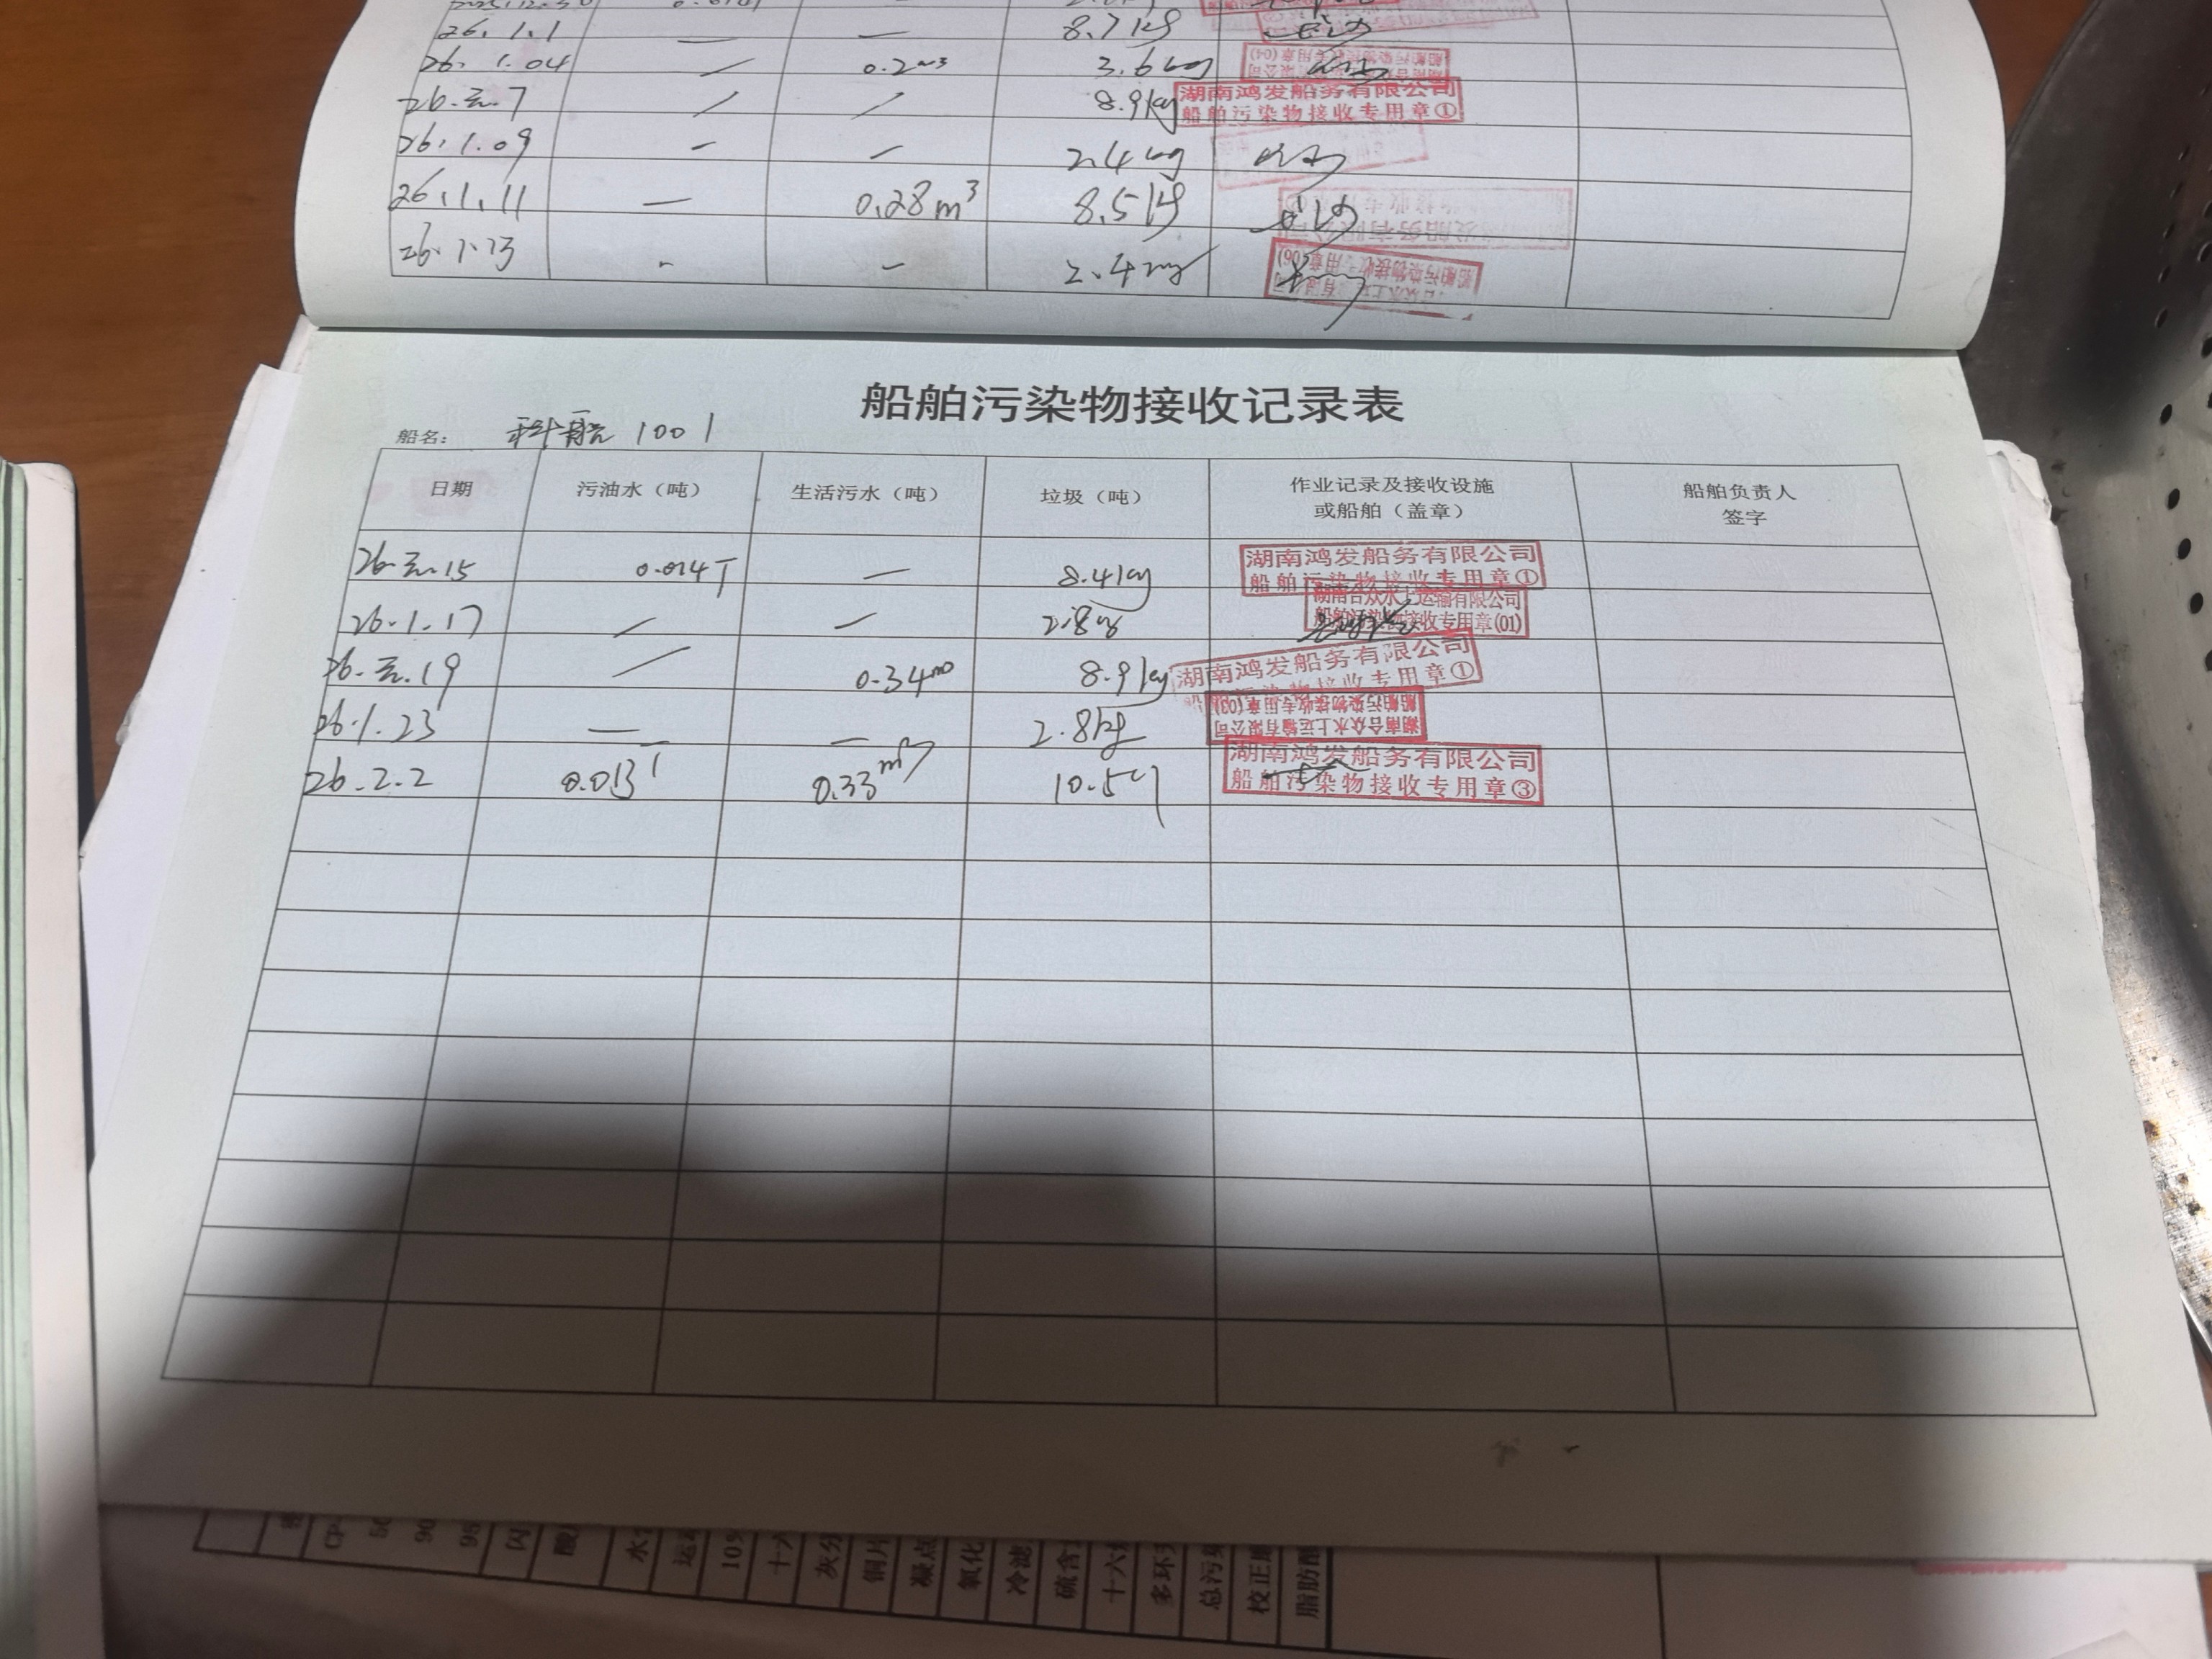 26.1.1 — — 8.7kg
26.1.04 / 0.2m³ 3.6kg
26.元.7 / / 8.9kg 湖南鸿发船务有限公司
船舶污染物接收专用章①
26.1.09 - - 2.4kg
26.1.11 — 0.28m³ 8.5kg
26.1.13 - - 2.4kg
船舶污染物接收记录表
船名: 科航1001
日期 污油水(吨) 生活污水(吨) 垃圾(吨) 作业记录及接收设施 船舶负责人
或船舶(盖章) 签字
26.元.15 0.014T — 8.4kg 湖南鸿发船务有限公司
船舶污染物接收专用章①
26.1.17 / / 2.8kg 湖南合众水上运输有限公司
船舶污染物接收专用章(01)
26.元.19 / 0.34m³ 8.9kg 湖南鸿发船务有限公司
船舶污染物接收专用章①
26.1.23 — — 2.8kg 湖南合众水上运输有限公司
船舶污染物接收专用章(03)
26.2.2 0.013T 0.33m³ 10.5kg 湖南鸿发船务有限公司
船舶污染物接收专用章③
CP
50
90
95
闪
酸
水
运
10%
十六
灰分
铜片
凝点
氧化
冷滤
硫含
十六
多环
总污
校正
脂肪酸